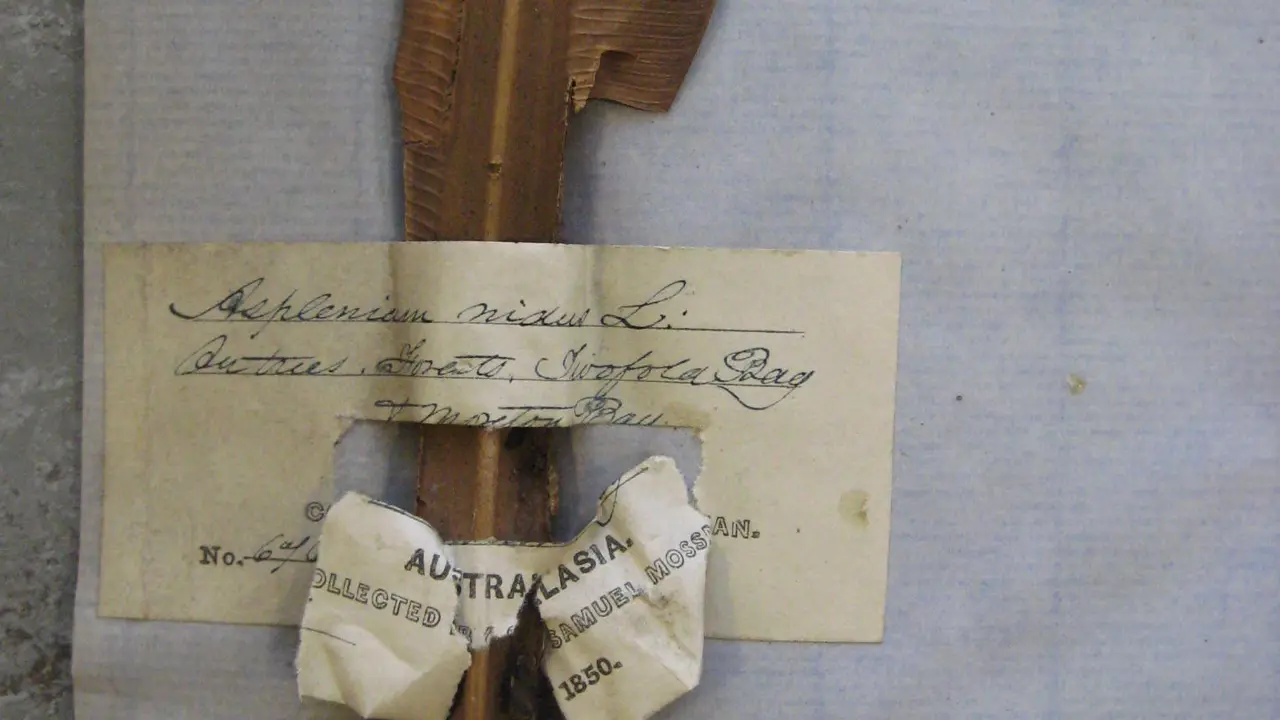 Asplenium nidus L:
On trees. Forests, Twofold Bay
& Moreton Bay.
AUSTRALASIA.
COLLECTED BY SAMUEL MOSSMAN.
No.
1850.